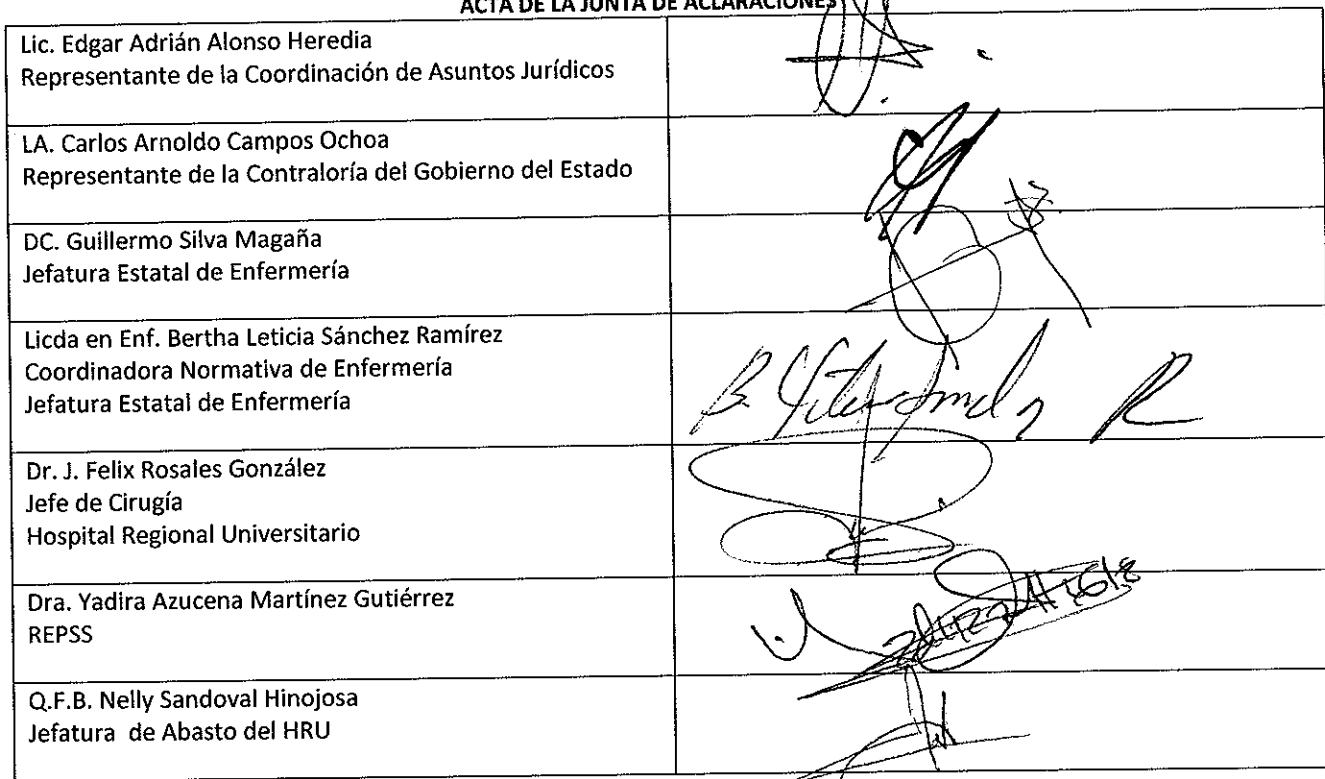 ACTA DE LA JUNTA DE ACLARACIONES
Lic. Edgar Adrián Alonso Heredia
Representante de la Coordinación de Asuntos Jurídicos
LA. Carlos Arnoldo Campos Ochoa
Representante de la Contraloría del Gobierno del Estado
DC. Guillermo Silva Magaña
Jefatura Estatal de Enfermería
Licda en Enf. Bertha Leticia Sánchez Ramírez
Coordinadora Normativa de Enfermería
Jefatura Estatal de Enfermería
Dr. J. Felix Rosales González
Jefe de Cirugía
Hospital Regional Universitario
Dra. Yadira Azucena Martínez Gutiérrez
REPSS
Q.F.B. Nelly Sandoval Hinojosa
Jefatura de Abasto del HRU